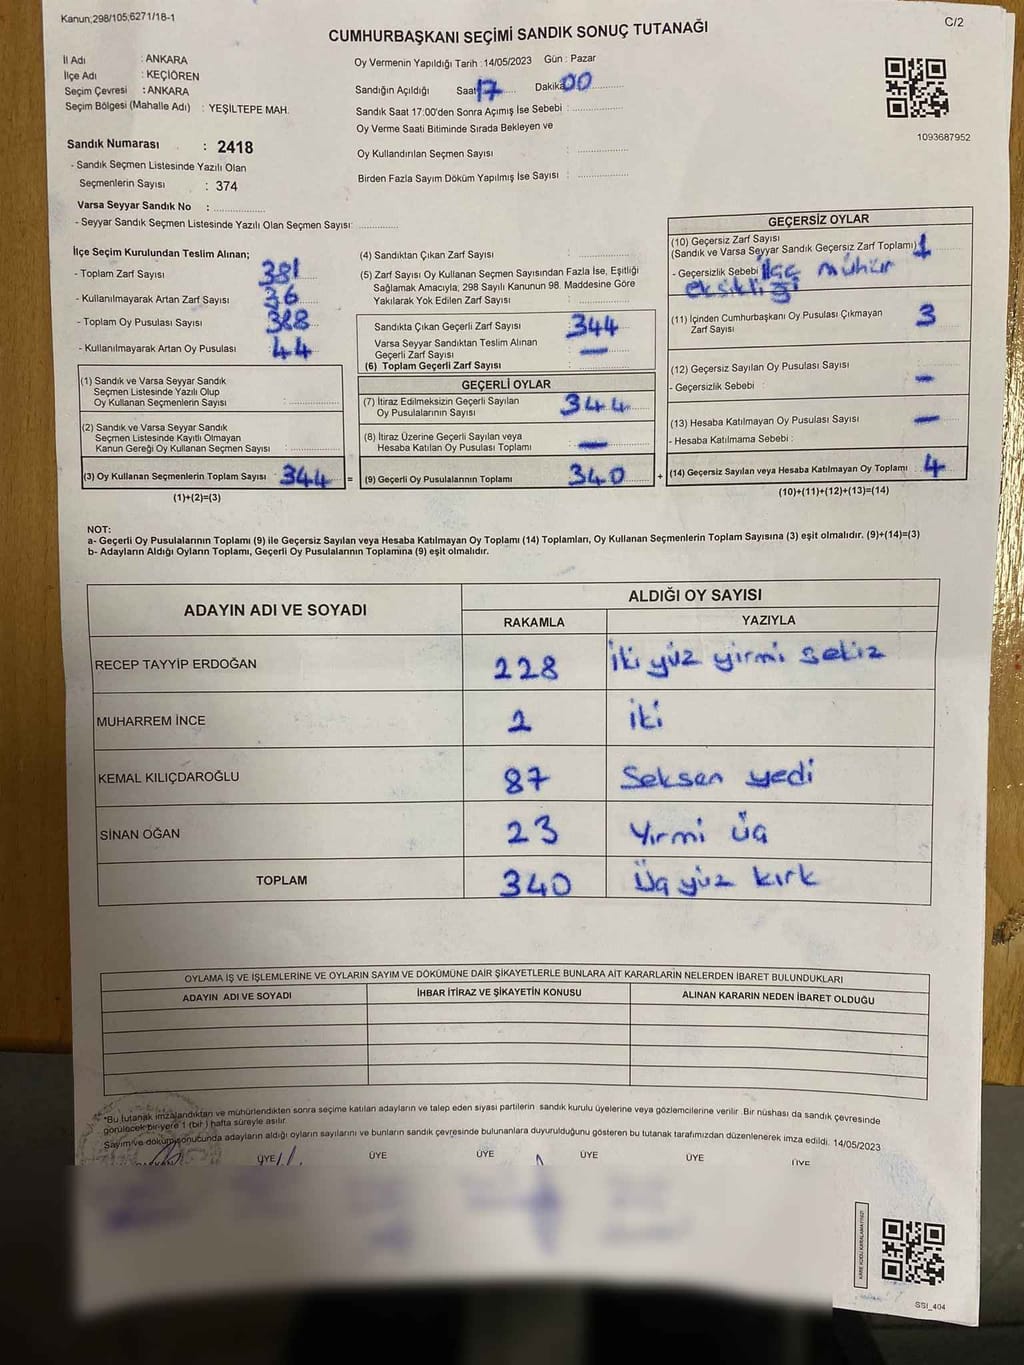 Kanun;298/105;6271/18-1
C/2
CUMHURBAŞKANI SEÇİMİ SANDIK SONUÇ TUTANAĞI
İl Adı : ANKARA
İlçe Adı : KEÇİÖREN
Seçim Çevresi : ANKARA
Seçim Bölgesi (Mahalle Adı) : YEŞİLTEPE MAH.
Sandık Numarası : 2418
- Sandık Seçmen Listesinde Yazılı Olan
Seçmenlerin Sayısı : 374
Varsa Seyyar Sandık No :
- Seyyar Sandık Seçmen Listesinde Yazılı Olan Seçmen Sayısı:
Oy Vermenin Yapıldığı Tarih :14/05/2023 Gün : Pazar
Sandığın Açıldığı Saat 17 Dakika 00
Sandık Saat 17:00'den Sonra Açımış İse Sebebi :
Oy Verme Saati Bitiminde Sırada Bekleyen ve
Oy Kullandırılan Seçmen Sayısı :
Birden Fazla Sayım Döküm Yapılmış İse Sayısı :
1093687952
İlçe Seçim Kurulundan Teslim Alınan;
- Toplam Zarf Sayısı 381
- Kullanılmayarak Artan Zarf Sayısı 36
- Toplam Oy Pusulası Sayısı 388
- Kullanılmayarak Artan Oy Pusulası 44
(1) Sandık ve Varsa Seyyar Sandık
Seçmen Listesinde Yazılı Olup
Oy Kullanan Seçmenlerin Sayısı :
(2) Sandık ve Varsa Seyyar Sandık
Seçmen Listesinde Kayıtlı Olmayan
Kanun Gereği Oy Kullanan Seçmen Sayısı :
(3) Oy Kullanan Seçmenlerin Toplam Sayısı : 344 =
(1)+(2)=(3)
(4) Sandıktan Çıkan Zarf Sayısı :
(5) Zarf Sayısı Oy Kullanan Seçmen Sayısından Fazla İse, Eşitliği
Sağlamak Amacıyla, 298 Sayılı Kanunun 98. Maddesine Göre
Yakılarak Yok Edilen Zarf Sayısı :
Sandıkta Çıkan Geçerli Zarf Sayısı 344
Varsa Seyyar Sandıktan Teslim Alınan
Geçerli Zarf Sayısı : —
(6) Toplam Geçerli Zarf Sayısı :
GEÇERLİ OYLAR
(7) İtiraz Edilmeksizin Geçerli Sayılan
Oy Pusulalarının Sayısı : 344
(8) İtiraz Üzerine Geçerli Sayılan veya
Hesaba Katılan Oy Pusulası Toplamı : —
(9) Geçerli Oy Pusulalarının Toplamı : 340 +
GEÇERSİZ OYLAR
(10) Geçersiz Zarf Sayısı
(Sandık ve Varsa Seyyar Sandık Geçersiz Zarf Toplamı) 1
- Geçersizlik Sebebi : İlçe mühür
eksikliği
(11) İçinden Cumhurbaşkanı Oy Pusulası Çıkmayan
Zarf Sayısı 3
(12) Geçersiz Sayılan Oy Pusulası Sayısı : —
- Geçersizlik Sebebi :
(13) Hesaba Katılmayan Oy Pusulası Sayısı : —
- Hesaba Katılmama Sebebi :
(14) Geçersiz Sayılan veya Hesaba Katılmayan Oy Toplamı : 4
(10)+(11)+(12)+(13)=(14)
NOT:
a- Geçerli Oy Pusulalarının Toplamı (9) ile Geçersiz Sayılan veya Hesaba Katılmayan Oy Toplamı (14) Toplamları, Oy Kullanan Seçmenlerin Toplam Sayısına (3) eşit olmalıdır. (9)+(14)=(3)
b- Adayların Aldığı Oyların Toplamı, Geçerli Oy Pusulalarının Toplamına (9) eşit olmalıdır.
ADAYIN ADI VE SOYADI
ALDIĞI OY SAYISI
RAKAMLA YAZIYLA
RECEP TAYYİP ERDOĞAN 228 İki yüz yirmi sekiz
MUHARREM İNCE 2 iki
KEMAL KILIÇDAROĞLU 87 Seksen yedi
SİNAN OĞAN 23 Yirmi üç
TOPLAM 340 Üç yüz kırk
OYLAMA İŞ VE İŞLEMLERİNE VE OYLARIN SAYIM VE DÖKÜMÜNE DAİR ŞİKAYETLERLE BUNLARA AİT KARARLARIN NELERDEN İBARET BULUNDUKLARI
ADAYIN ADI VE SOYADI İHBAR İTİRAZ VE ŞİKAYETİN KONUSU ALINAN KARARIN NEDEN İBARET OLDUĞU
*Bu tutanak imzalandıktan ve mühürlendikten sonra seçime katılan adayların ve talep eden siyasi partilerin sandık kurulu üyelerine veya gözlemcilerine verilir. Bir nüshası da sandık çevresinde
görülecek bir yere 1 (bir) hafta süreyle asılır.
Sayım ve döküm sonucunda adayların aldığı oyların sayılarını ve bunların sandık çevresinde bulunanlara duyurulduğunu gösteren bu tutanak tarafımızdan düzenlenerek imza edildi. 14/05/2023
ÜYE ÜYE ÜYE ÜYE ÜYE ÜYE
SSI_404